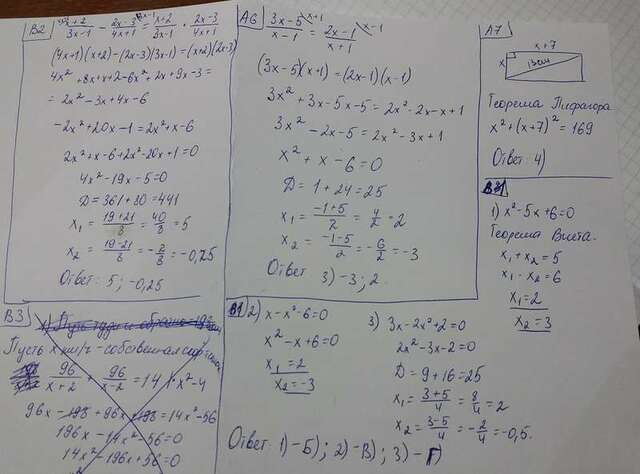 B2
(x+2)/(3x-1) - (2x-3)/(4x+1) = (x+2)/(3x-1) · (2x-3)/(4x+1)
(4x+1)(x+2)-(2x-3)(3x-1)=(x+2)(2x-3)
4x²+8x+x+2-6x²+2x+9x-3=
= 2x²-3x+4x-6
-2x²+20x-1=2x²+x-6
2x²+x-6+2x²-20x+1=0
4x²-19x-5=0
D=361+80=441
x₁ = (19+21)/8 = 40/8 = 5
x₂ = (19-21)/8 = -2/8 = -0,25
Ответ: 5; -0,25
A6
(3x-5)/(x-1) \x+1 = (2x-1)/(x+1) \x-1
(3x-5)(x+1)=(2x-1)(x-1)
3x²+3x-5x-5=2x²-2x-x+1
3x²-2x-5=2x²-3x+1
x²+x-6=0
D=1+24=25
x₁ = (-1+5)/2 = 4/2 = 2
x₂ = (-1-5)/2 = -6/2 = -3
Ответ 3) -3; 2
A7
x+7
x
13см
Теорема Пифагора
x²+(x+7)²=169
Ответ: 4)
B1
1) x²-5x+6=0
Теорема Виета.
x₁+x₂=5
x₁·x₂=6
x₁=2
x₂=3
B3
Пусть x км/ч - собственная
96/(x+2) + 96/(x-2) = 14 |·x²-4
96x-193+96x+193=14x²-56
196x-14x²+56=0
14x²-196x+56=0
B1 2) x-x²-6=0
x²-x+6=0
x₁=2
x₂=-3
3) 3x-2x²+2=0
2x²-3x-2=0
D=9+16=25
x₁ = (3+5)/4 = 8/4 = 2
x₂ = (3-5)/4 = -2/4 = -0,5.
Ответ: 1)-Б); 2)-В); 3)-Г)